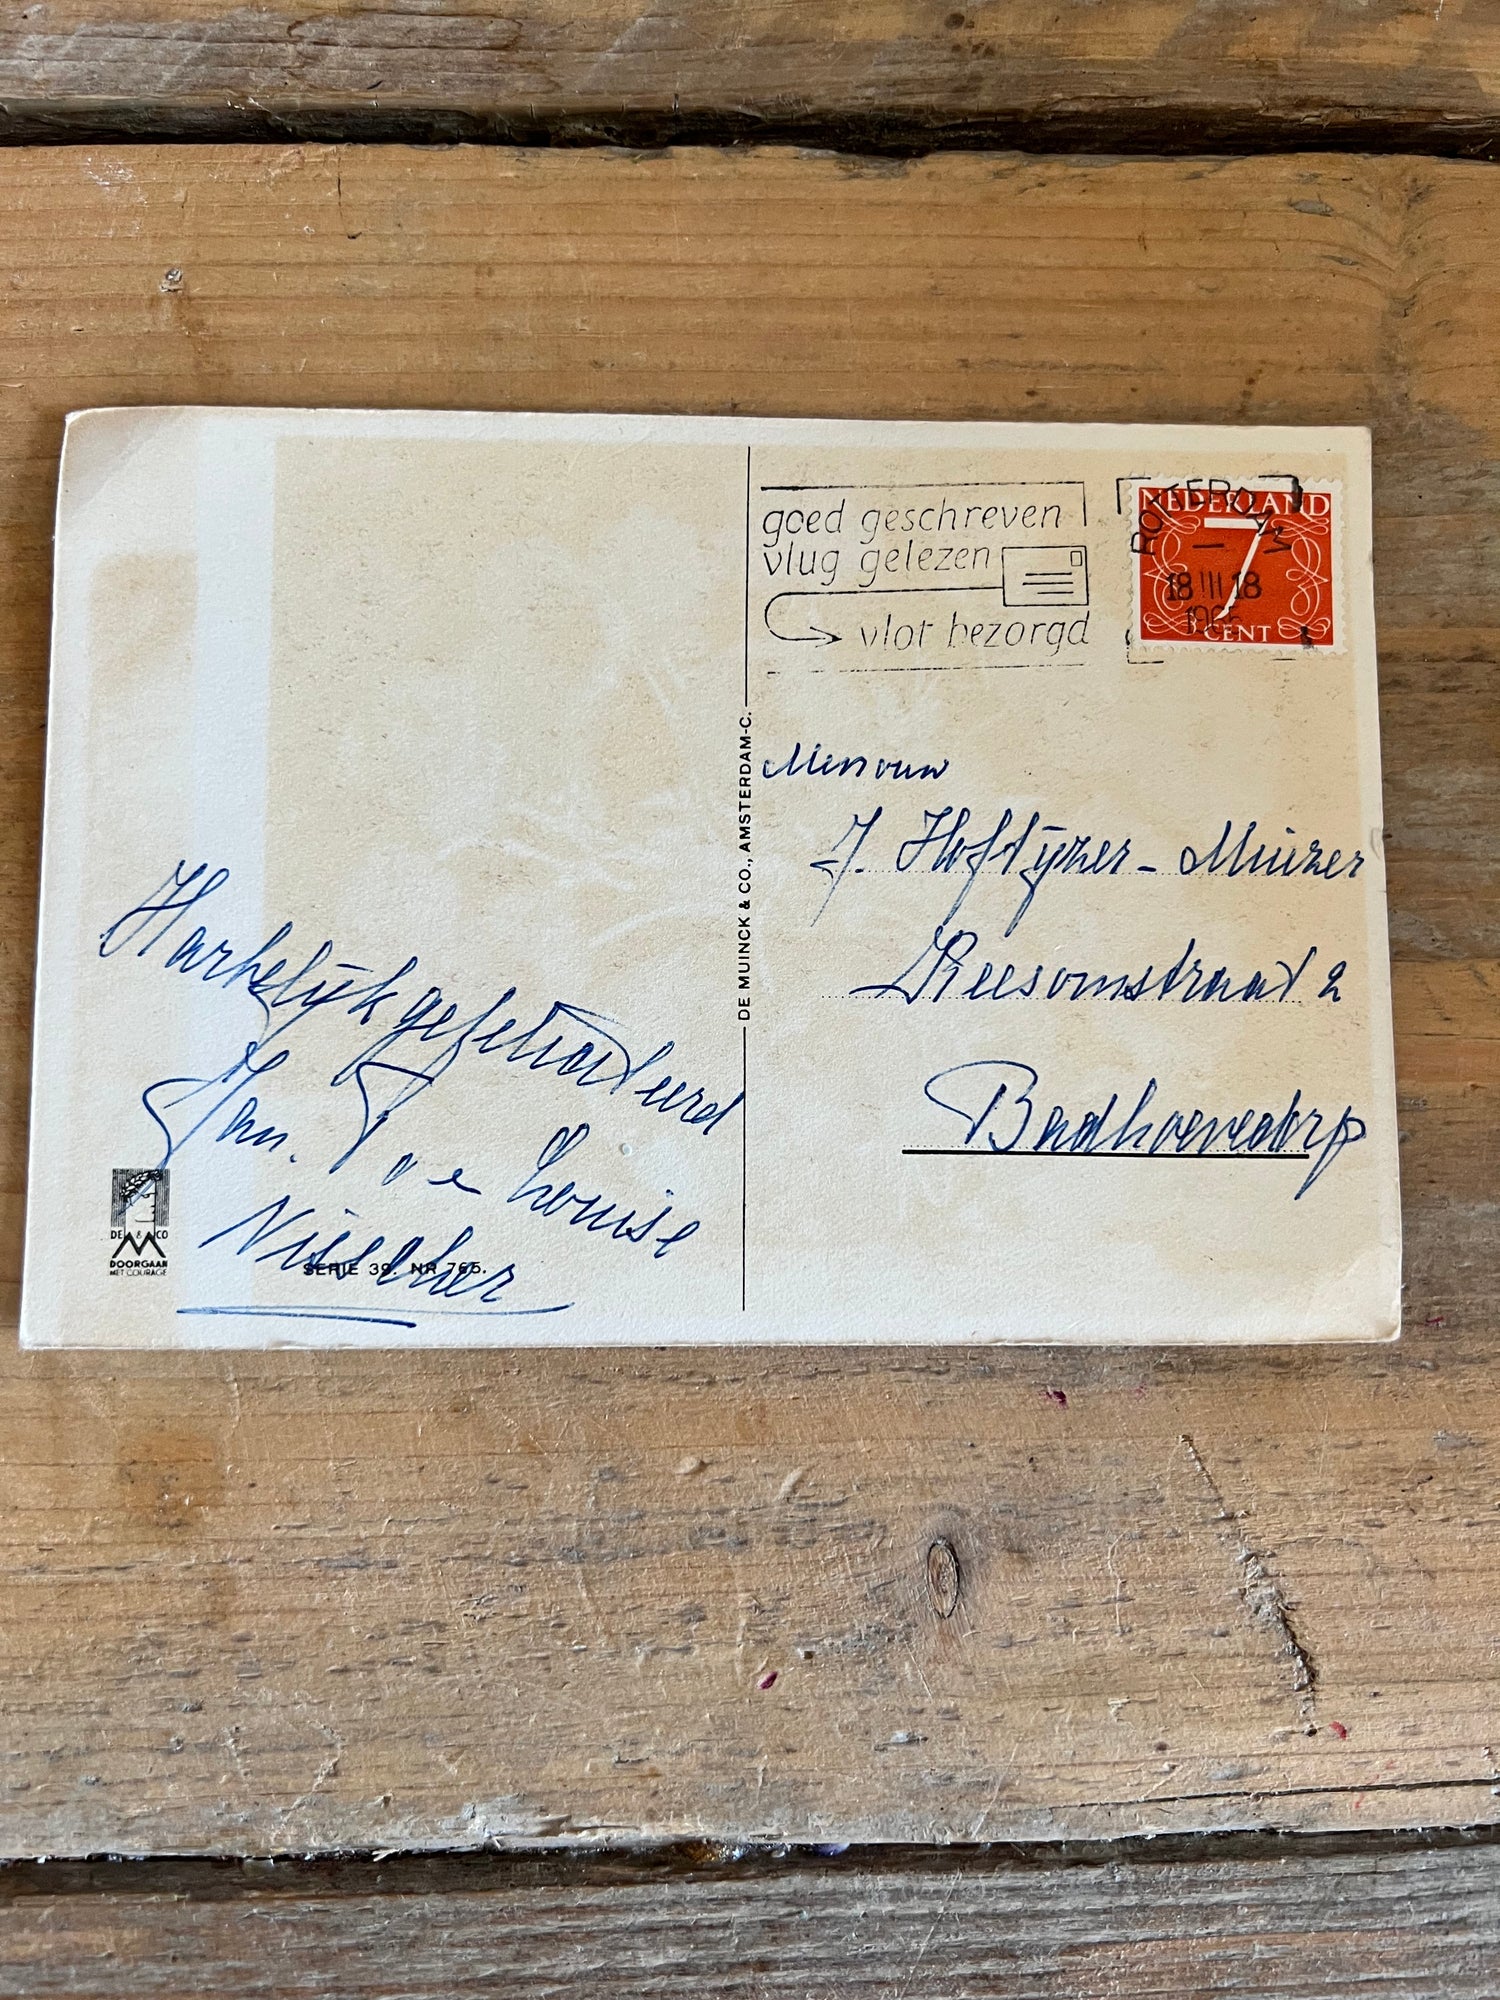 goed geschreven
vlug gelezen
vlot bezorgd
ROTTERDAM
18 III 18
1965
NEDERLAND
7
CENT
Mevrouw
J. Hoftijzer - Muizer
Reesomstraat 2
Badhoevedorp
Hartelijk gefeliciteerd
Jan. T. e Louise
Visscher
DE MUINCK & CO., AMSTERDAM-C.
DE M & CO
DOORGAAN
MET COURAGE
SERIE 39. NR 765.